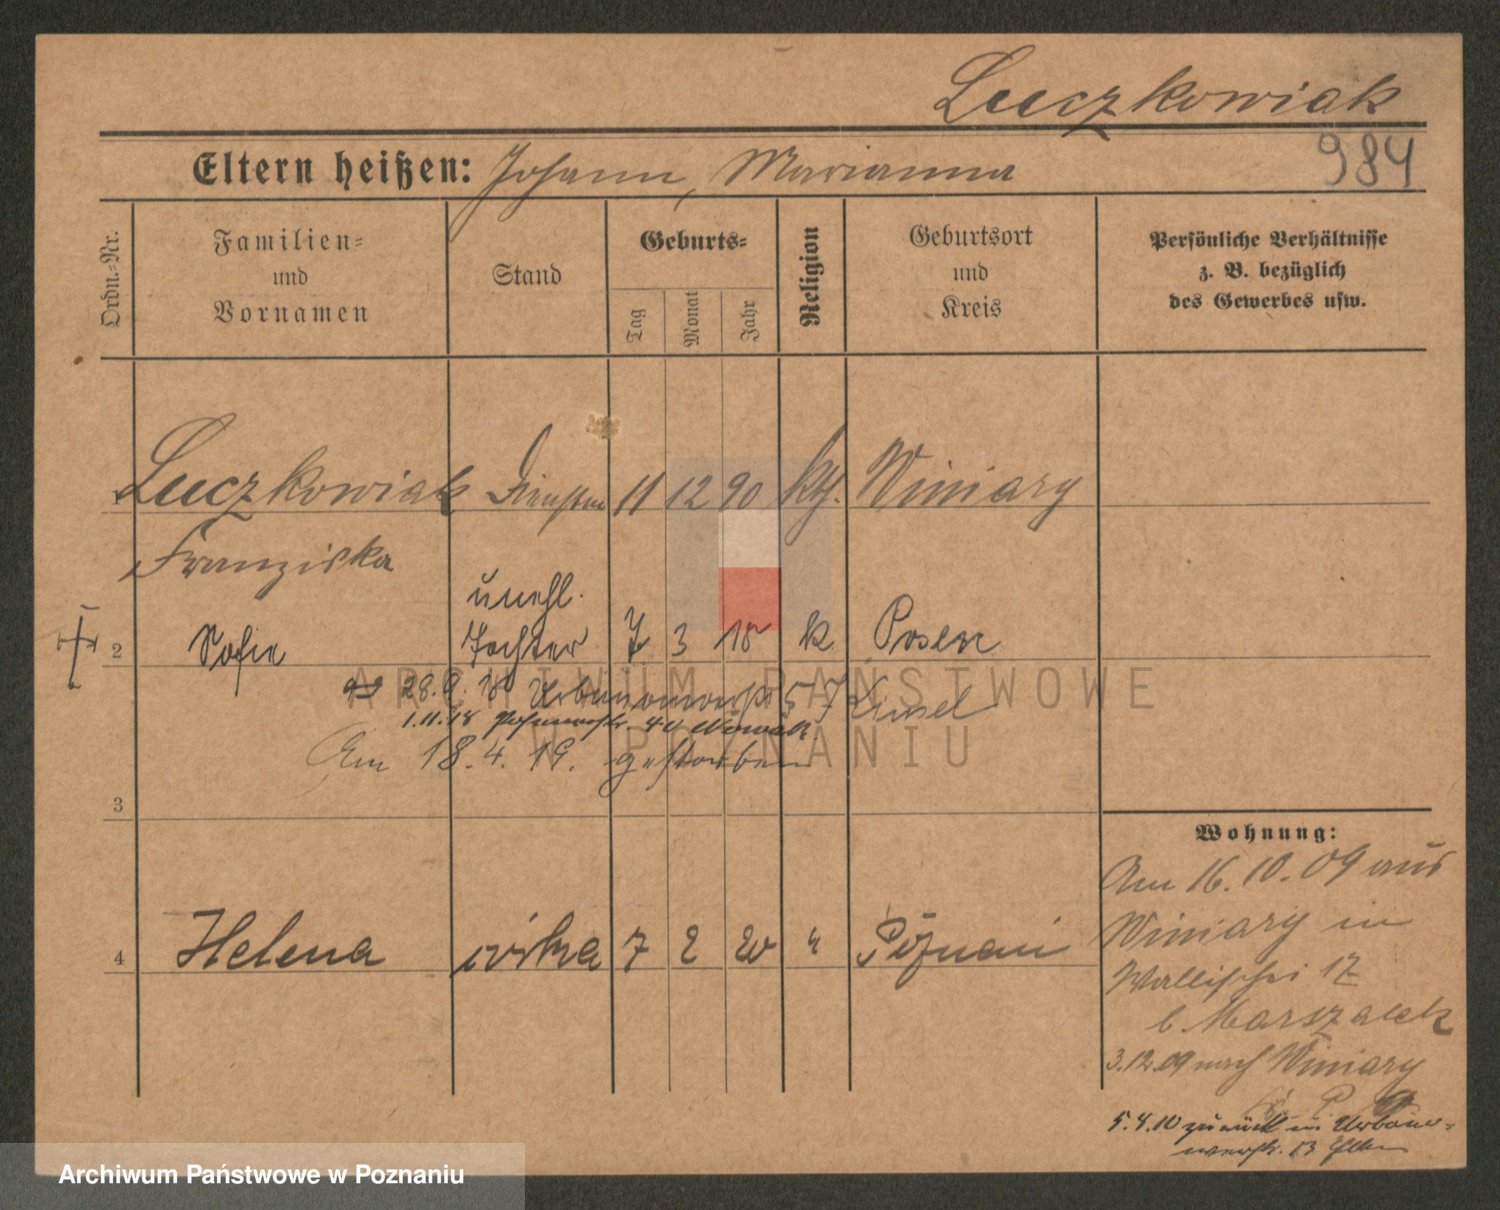 Luczkowiak
Eltern heißen: Johann, Marianna
984
Ordn.-Nr.
Familien-
und
Vornamen
Stand
Geburts-
Tag
Monat
Jahr
Religion
Geburtsort
und
Kreis
Persönliche Verhältnisse
z. B. bezüglich
des Gewerbes usw.
1 Luczkowiak 11 12 90 kth. Winiary
Franziska
unehl.
2 Sofie Tochter 7 3 18 k Posen
28.9.18 57
1.11.18 40 Nowak
Am 18.4.19. gestorben
3
4 Helena córka 7 2 20 Poznań
Wohnung:
Am 16.10.09 aus
Winiary in
Wallischei 17
b. Marszalek
3.12.09 nach Winiary
5.4.10 zurück in Urbano-
werstr. 13 Eltern
ARCHIWUM PAŃSTWOWE
W POZNANIU
Archiwum Państwowe w Poznaniu